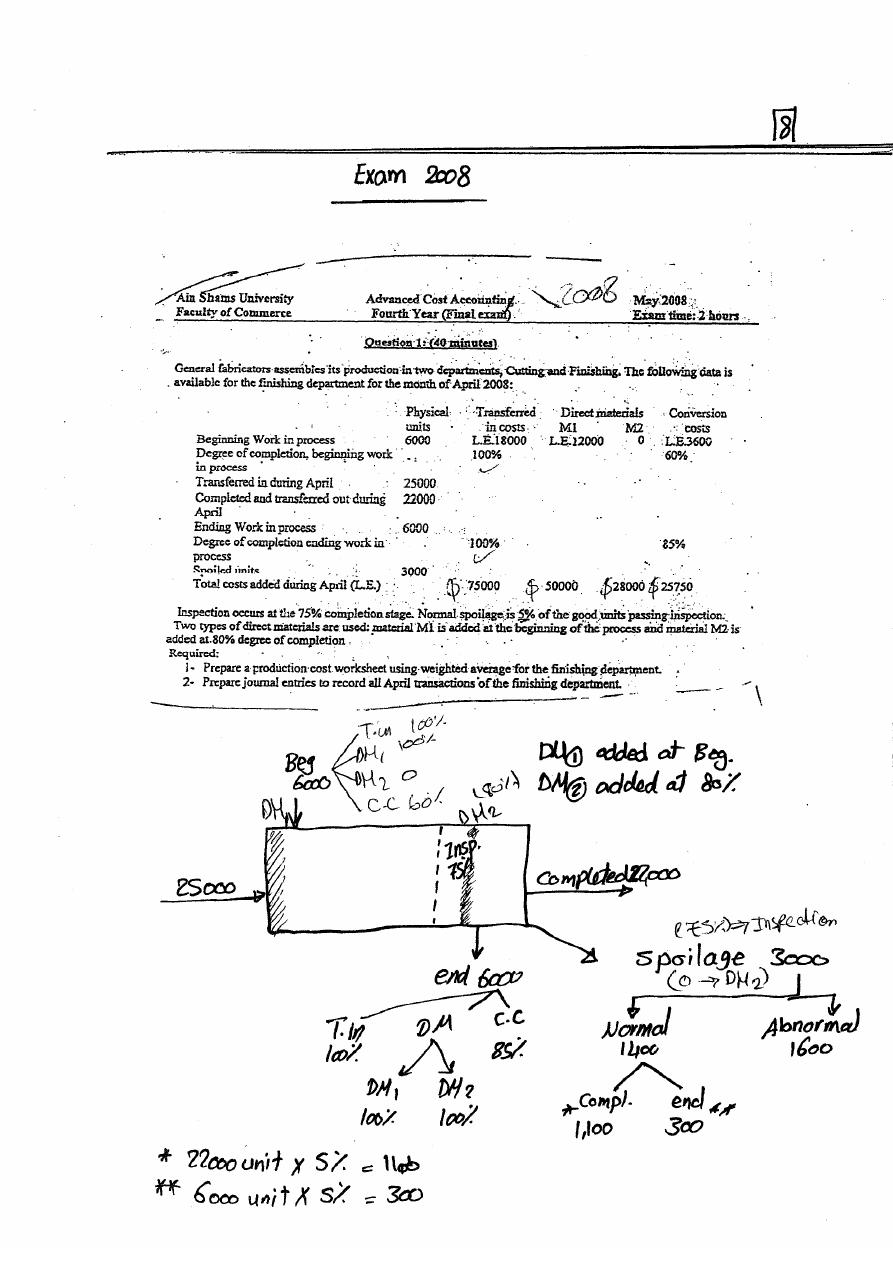 8
Exam 2008
Ain Shams University Advanced Cost Accounting 2008 May 2008
Faculty of Commerce Fourth Year (Final exam) Exam time: 2 hours
Question 1: (40 minutes)
General fabricators assembles its production in two departments, Cutting and Finishing. The following data is
available for the finishing department for the month of April 2008:
Physical Transferred Direct materials Conversion
units in costs M1 M2 costs
Beginning Work in process 6000 L.E.18000 L.E.12000 0 L.E.3600
Degree of completion, beginning work 100% 60%
in process
Transferred in during April 25000
Completed and transferred out during 22000
April
Ending Work in process 6000
Degree of completion ending work in 100% 85%
process
Spoiled units 3000
Total costs added during April (L.E.) $ 75000 $ 50000 $28000 $ 25750
Inspection occurs at the 75% completion stage. Normal spoilage is 5% of the good units passing inspection.
Two types of direct materials are used: material M1 is added at the beginning of the process and material M2 is
added at 80% degree of completion
Required:
1- Prepare a production cost worksheet using weighted average for the finishing department.
2- Prepare journal entries to record all April transactions of the finishing department.
T.in 100%
Beg DM1 100%
6000 DM2 0
C.C 60%
DM1 added at Beg.
DM2 added at 80%
DM1
(80%)
DM2
Insp.
75%
25000
Completed 22,000
(75%) => Inspection
Spoilage 3000
(0 → DM2)
end 6000
T.In DM C.C
100% 85%
DM1 DM2
100% 100%
Normal Abnormal
1400 1600
* Compl. end **
1,100 300
* 22000 unit x 5% = 1100
** 6000 unit x 5% = 300